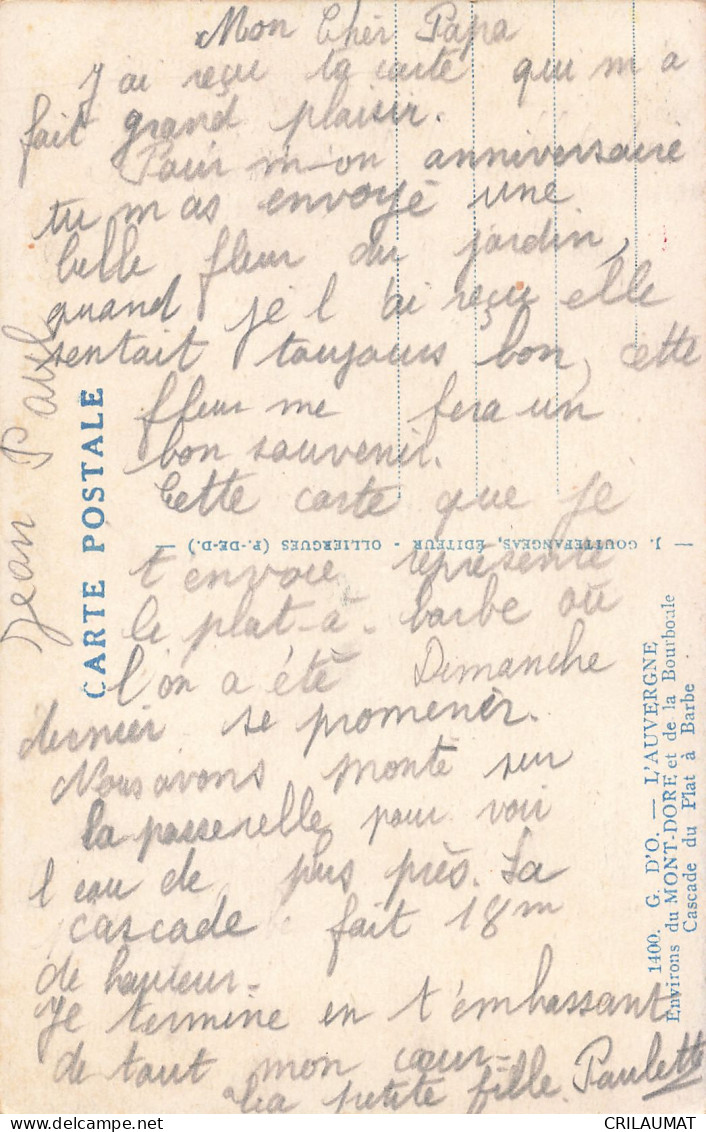 Mon Cher Papa
J ai reçu ta carte qui m a
fait grand plaisir.
Pour m-on anniversaire
tu m as envoyé une
belle fleur du jardin,
quand je l ai reçu elle
sentait toujours bon, cette
fleur me fera un
bon souvenir.
Cette carte que je
t envoie représente
le plat-à-barbe où
l'on a été Dimanche
dernier se promener.
Nous avons monté sur
la passerelle pour voir
l eau de plus près. La
cascade fait 18m
de hauteur-
Je termine en t'embrassant
de tout mon cœur-
ta petite fille. Paulette
Jean Paul
CARTE POSTALE
J. GOUTTEFANGEAS, ÉDITEUR - OLLIERGUES (P.-DE-D.)
1400. G. D'O. — L'AUVERGNE
Environs du MONT-DORE et de la Bourboule
Cascade du Plat à Barbe
CRILAUMAT